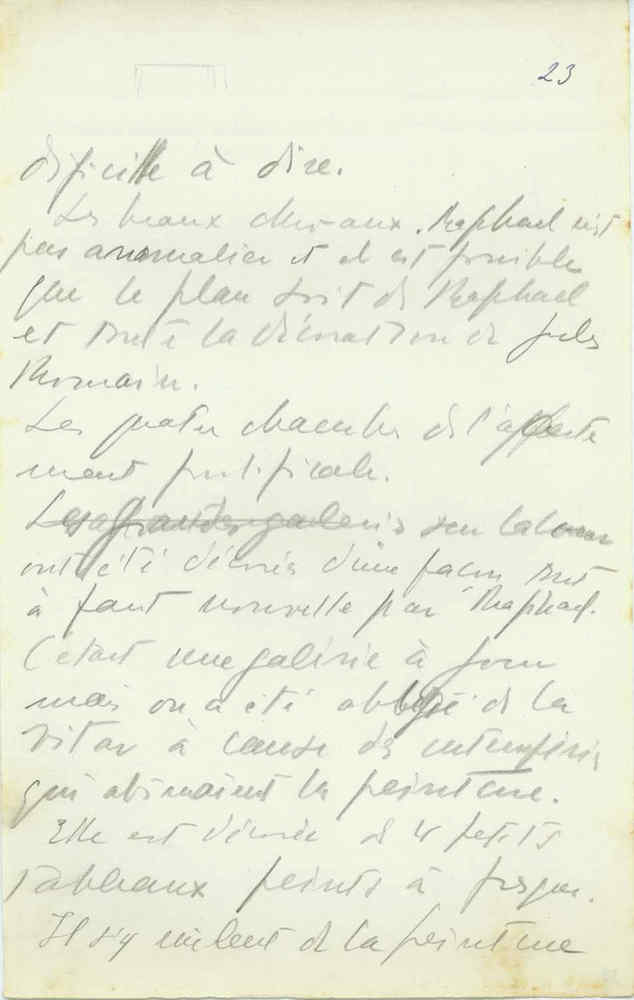 23
difficile à dire.
Les beaux chevaux. Raphael n'est
pas animalier et il est possible
que le plan soit de Raphael
et toute la décoration de Jules
Romain.
Les quatre chambres de l'apparte
ment pontificale.
Les grandes galeries
ont été décorées d'une façon tout
à fait nouvelle par Raphael.
C'était une galerie à jour
mais on a été obligé de la
vitrer à cause des intempéries
qui abimaient la peinture.
Elle est décorée de 4 petits
tableaux peints à fresque.
Il s'y mêlent de la peinture